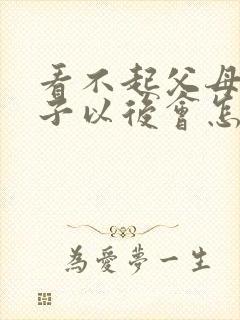 看不起父母
子以後會怎
為愛夢一生